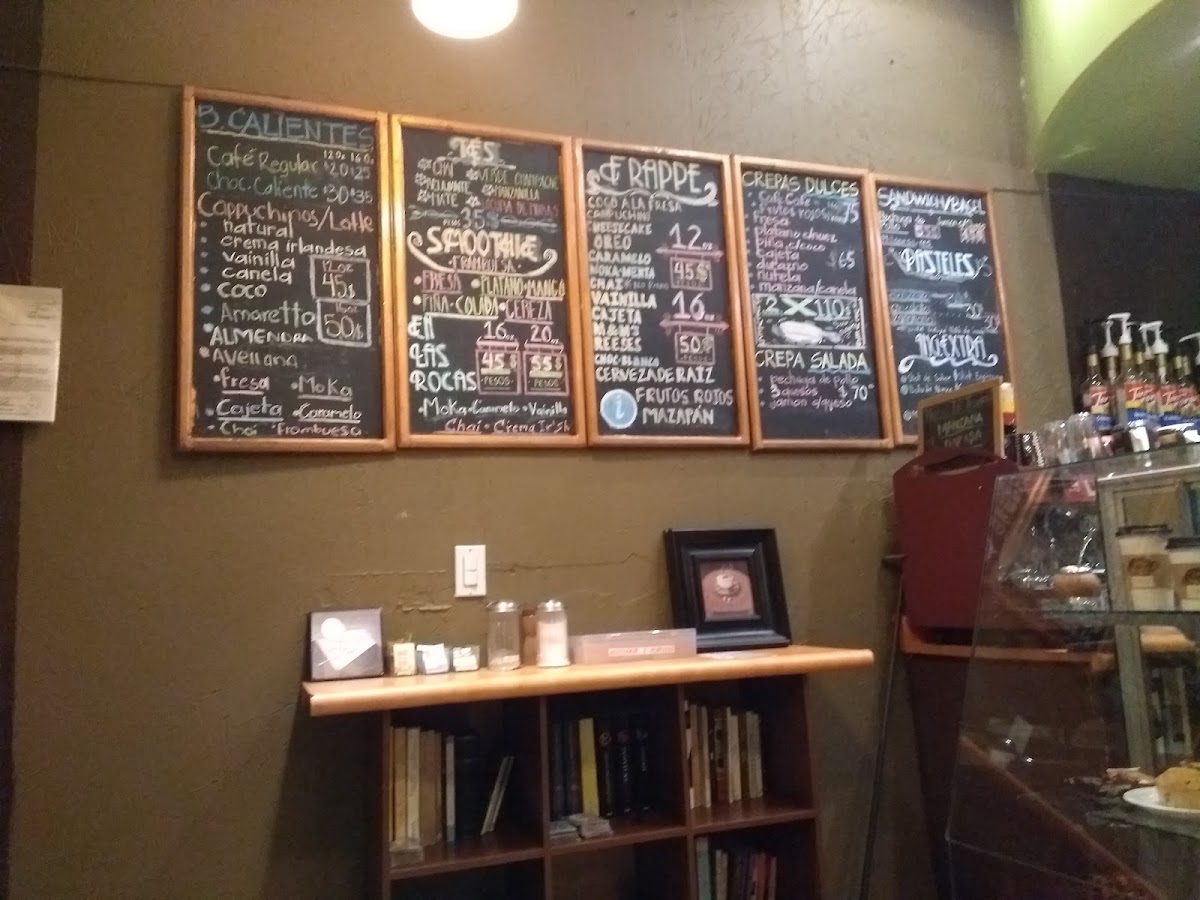 B. CALIENTES
12oz 16oz
Café Regular $20 $25
Choc. Caliente $30 $35
Cappuchinos/Latte
natural
crema irlandesa
Vainilla
canela
COCO
12oz
45$
50$
Amaretto
ALMENDRA
Avellana
fresa
MoKa
Cajeta
Caramelo
Chai
Frambuesa
TÉS
CHAI
VERDE
MANZANILLA
MATE
35
SMOOTHIE
FRAMBUESA
FRESA
PLATANO-MANGO
PIÑA-COLADA
CEREZA
EN
LAS
ROCAS
16oz 20oz
45$ 55$
PESOS PESOS
MoKa Caramelo Vainilla
Chai Crema Irish
FRAPPE
COCO A LA FRESA
CAPPUCHINO
CHEESECAKE
OREO
CARAMELO
MOKA-MENTA
CHAI
VAINILLA
CAJETA
M&MS
REESES
CHOC-BLANCO
CERVEZA DE RAIZ
12oz
45$
16oz
50$
FRUTOS ROJOS
MAZAPÁN
CREPAS DULCES
Frutos rojos 75
Fresa
platano c/nuez
piña c/coco
Cajeta
$65
durazno
nutela
manzana/canela
2X110$
CREPA SALADA
pechuga de pollo
3 quesos $70
jamon c/queso
SANDWICH/BAGEL
PASTELES
30
MANZANA